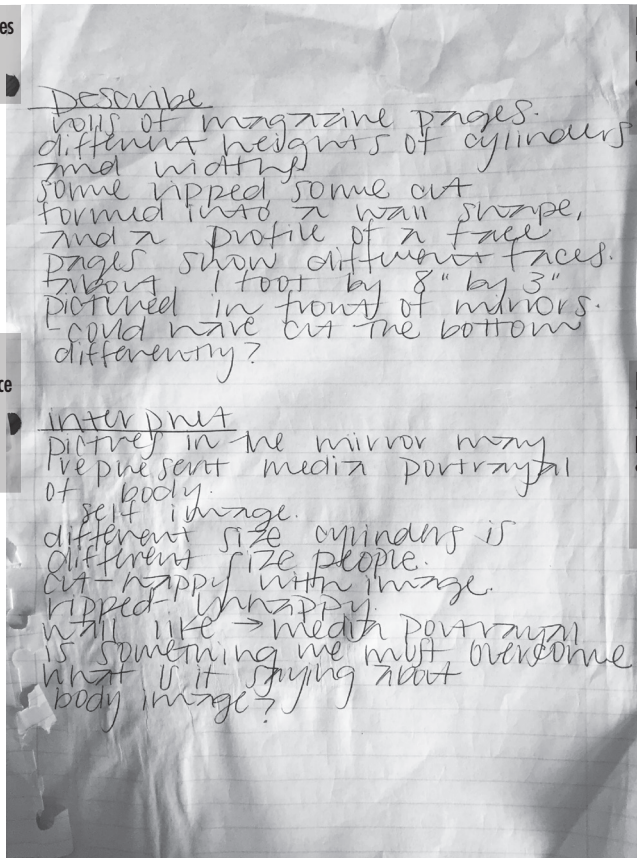 es
ce
Describe
rolls of magazine pages.
different heights of cylinders
and widths
some ripped some cut
formed into a wall shape,
and a profile of a face
pages show different faces.
about 1 foot by 8" by 3"
pictured in front of mirrors.
- could have cut the bottom
differently?
interpret
pictres in the mirror may
represent media portrayal
of body.
self image.
different size cylinders is
different size people.
cut-happy with image.
ripped- unhappy.
wall like → media portrayal
is something we must overcome
what is it saying about
body image?